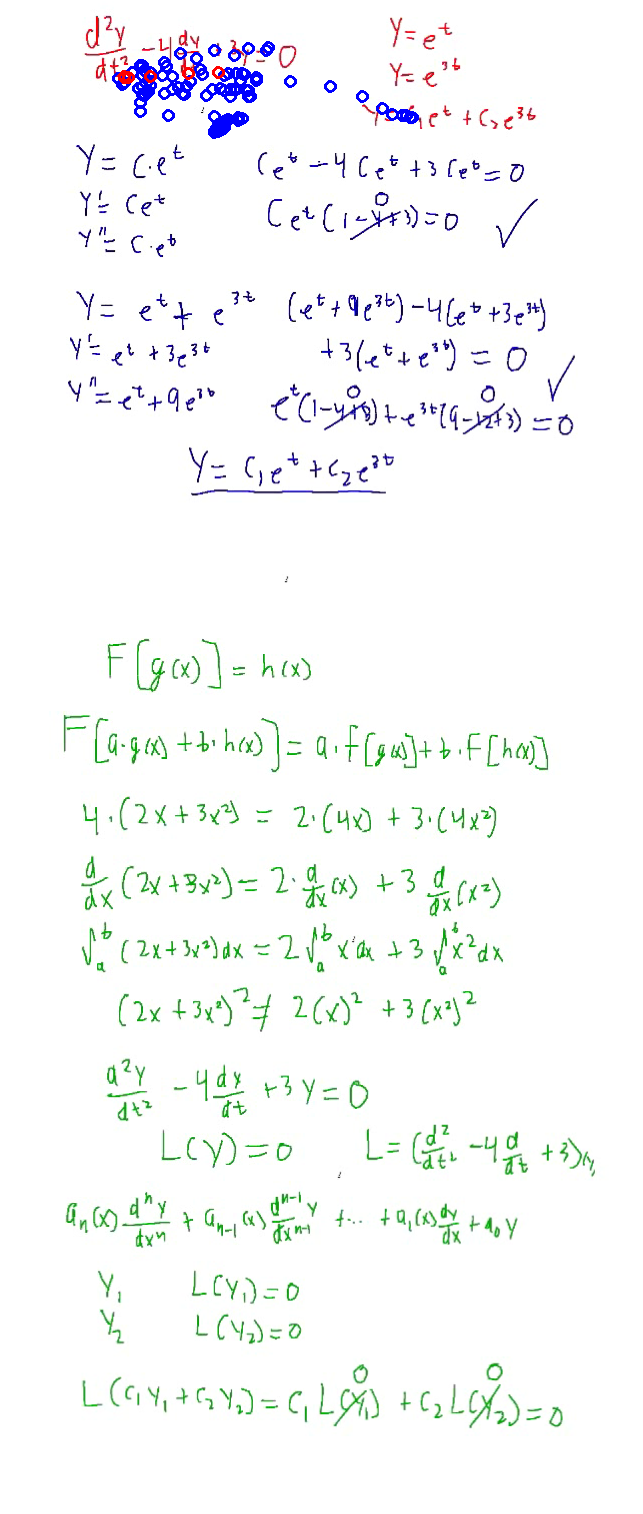 d²y/dt² - 4 dy/dt + 3y = 0
Y = e^t
Y = e^3t
Y = C₁e^t + C₂e^3t
Y = C·e^t
Ce^t - 4Ce^t + 3Ce^t = 0
Y' = Ce^t
Ce^t(1-4+3) = 0 ✓
0
Y'' = C·e^t
Y = e^t + e^3t
(e^t + 9e^3t) - 4(e^t + 3e^3t)
Y' = e^t + 3e^3t
+3(e^t + e^3t) = 0 ✓
Y'' = e^t + 9e^3t
0 0
e^t(1-4+3) + e^3t(9-12+3) = 0
Y = C₁e^t + C₂e^3t
F[g(x)] = h(x)
F[a·g(x) + b·h(x)] = a·F[g(x)] + b·F[h(x)]
4·(2x + 3x²) = 2·(4x) + 3·(4x²)
d/dx (2x + 3x²) = 2·d/dx (x) + 3 d/dx (x²)
∫_a^b (2x + 3x²)dx = 2∫_a^b x dx + 3∫_a^b x² dx
(2x + 3x²)² ≠ 2(x)² + 3(x²)²
d²y/dt² - 4 dy/dt + 3y = 0
L(y) = 0 L = (d²/dt² - 4 d/dt + 3)y
aₙ(x) dⁿy/dxⁿ + aₙ₋₁(x) dⁿ⁻¹y/dxⁿ⁻¹ + ... + a₁(x) dy/dx + a₀y
Y₁ L(Y₁) = 0
Y₂ L(Y₂) = 0
0 0
L(C₁Y₁ + C₂Y₂) = C₁L(Y₁) + C₂L(Y₂) = 0